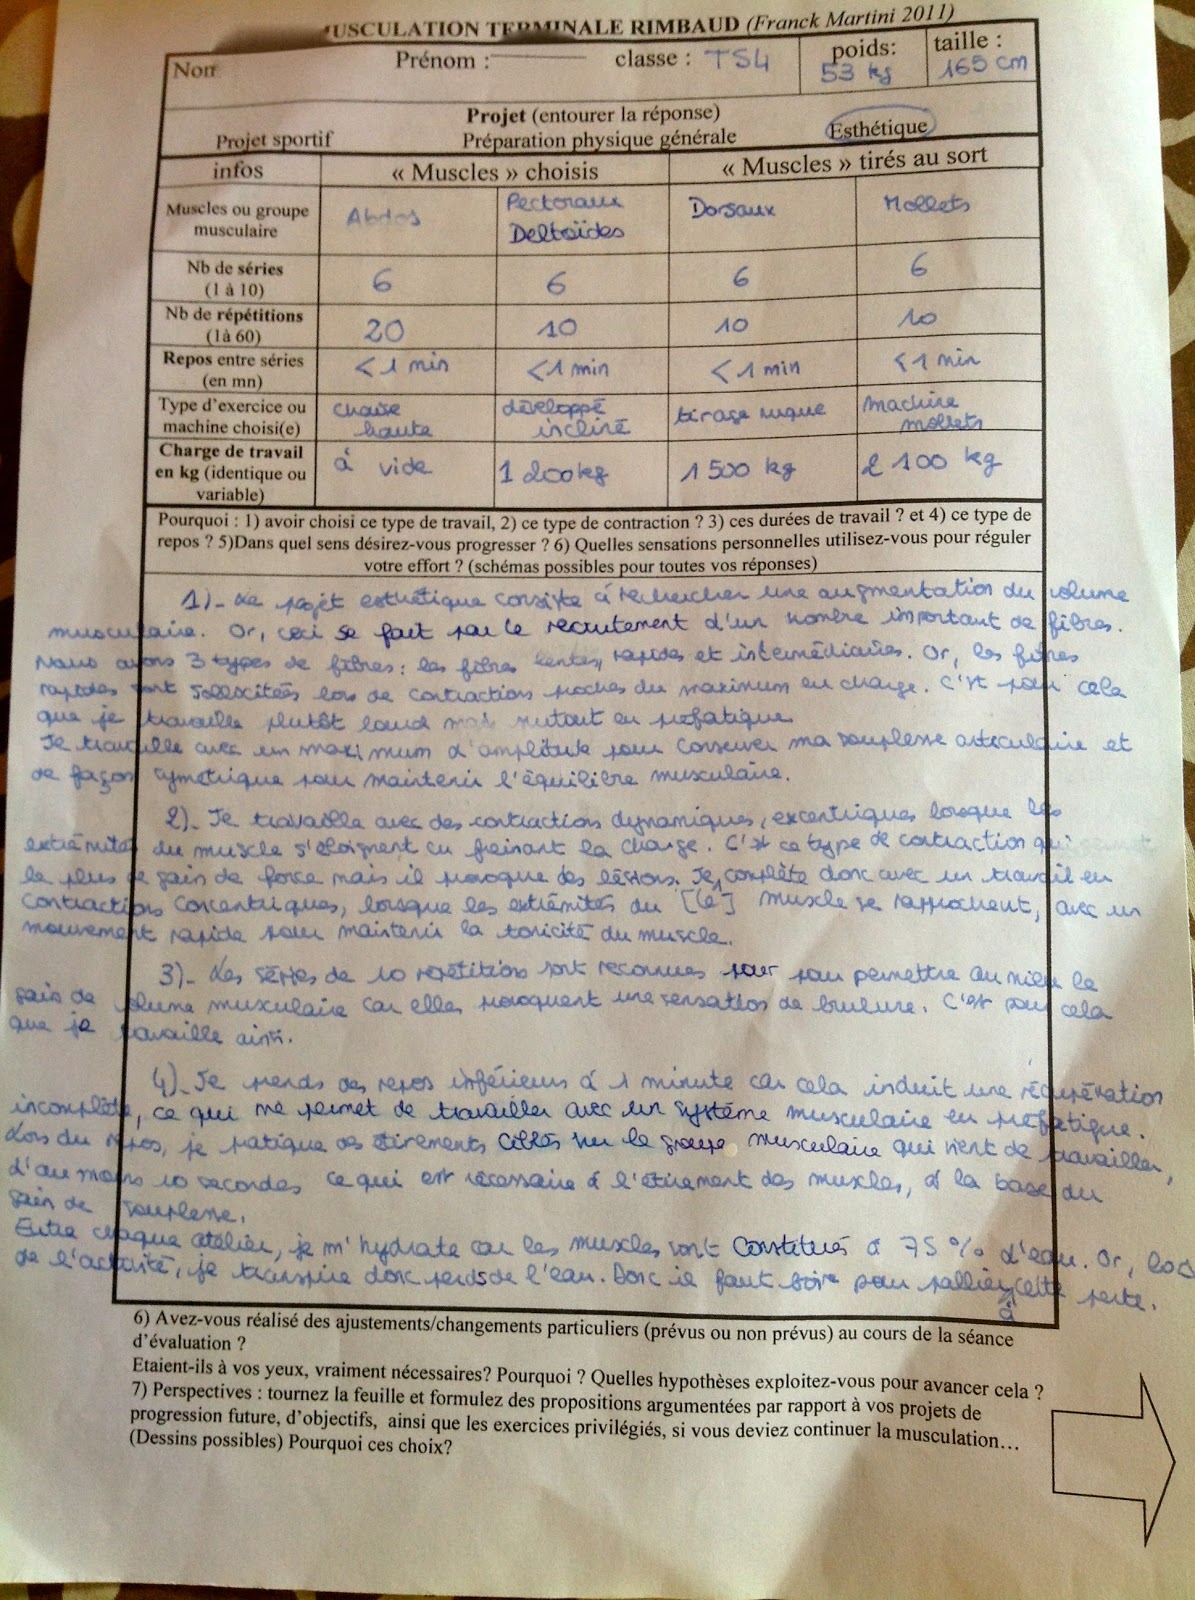 MUSCULATION TERMINALE RIMBAUD (Franck Martini 2011)
Nom Prénom : classe : TS4 poids: 53 kg taille : 165 cm
Projet (entourer la réponse)
Projet sportif Préparation physique générale Esthétique
infos « Muscles » choisis « Muscles » tirés au sort
Muscles ou groupe musculaire Abdos Pectoraux Deltoïdes Dorsaux Mollets
Nb de séries (1 à 10) 6 6 6 6
Nb de répétitions (1à 60) 20 10 10 10
Repos entre séries (en mn) < 1 min < 1 min < 1 min < 1 min
Type d'exercice ou machine choisi(e) chaise haute développé incliné tirage nuque machine mollets
Charge de travail en kg (identique ou variable) à vide 1 200 kg 1 500 kg 2 100 kg
Pourquoi : 1) avoir choisi ce type de travail, 2) ce type de contraction ? 3) ces durées de travail ? et 4) ce type de
repos ? 5)Dans quel sens désirez-vous progresser ? 6) Quelles sensations personnelles utilisez-vous pour réguler
votre effort ? (schémas possibles pour toutes vos réponses)
1)- Le projet esthétique consiste à rechercher une augmentation du volume
musculaire. Or, ceci se fait par le recrutement d'un nombre important de fibres.
Nous avons 3 types de fibres : les fibres lentes, rapides et intermédiaires. Or, les fibres
rapides sont sollicitées lors de contractions proches du maximum en charge. C'est pour cela
que je travaille plutôt lourd mais surtout en préfatigue.
Je travaille avec un maximum d'amplitude pour conserver ma souplesse articulaire et
de façon symétrique pour maintenir l'équilibre musculaire.
2)- Je travaille avec des contractions dynamiques, excentriques lorsque les
extrémités du muscle s'éloignent en freinant la charge. C'est ce type de contraction qui permet
le plus de gain de force mais il provoque des lésions. Je complète donc avec un travail en
contractions concentriques, lorsque les extrémités du [le] muscle se rapprochent, avec un
mouvement rapide pour maintenir la tonicité du muscle.
3)- Les séries de 10 répétitions sont reconnues pour pour permettre au mieux le
gain de volume musculaire car elles provoquent une sensation de brulure. C'est pour cela
que je travaille ainsi.
4)- Je prends des repos inférieurs à 1 minute car cela induit une récupération
incomplète, ce qui me permet de travailler avec un système musculaire en préfatigue.
Lors du repos, je pratique des étirements ciblés sur le groupe musculaire qui vient de travailler,
d'au moins 10 secondes ce qui est nécessaire à l'étirement des muscles, à la base du
gain de souplesse.
Entre chaque atelier, je m'hydrate car les muscles sont constitués à 75 % d'eau. Or, lors
de l'activité, je transpire donc perds de l'eau. Donc il faut boire pour pallier à cette perte.
6) Avez-vous réalisé des ajustements/changements particuliers (prévus ou non prévus) au cours de la séance
d'évaluation ?
Etaient-ils à vos yeux, vraiment nécessaires? Pourquoi ? Quelles hypothèses exploitez-vous pour avancer cela ?
7) Perspectives : tournez la feuille et formulez des propositions argumentées par rapport à vos projets de
progression future, d'objectifs, ainsi que les exercices privilégiés, si vous deviez continuer la musculation…
(Dessins possibles) Pourquoi ces choix?